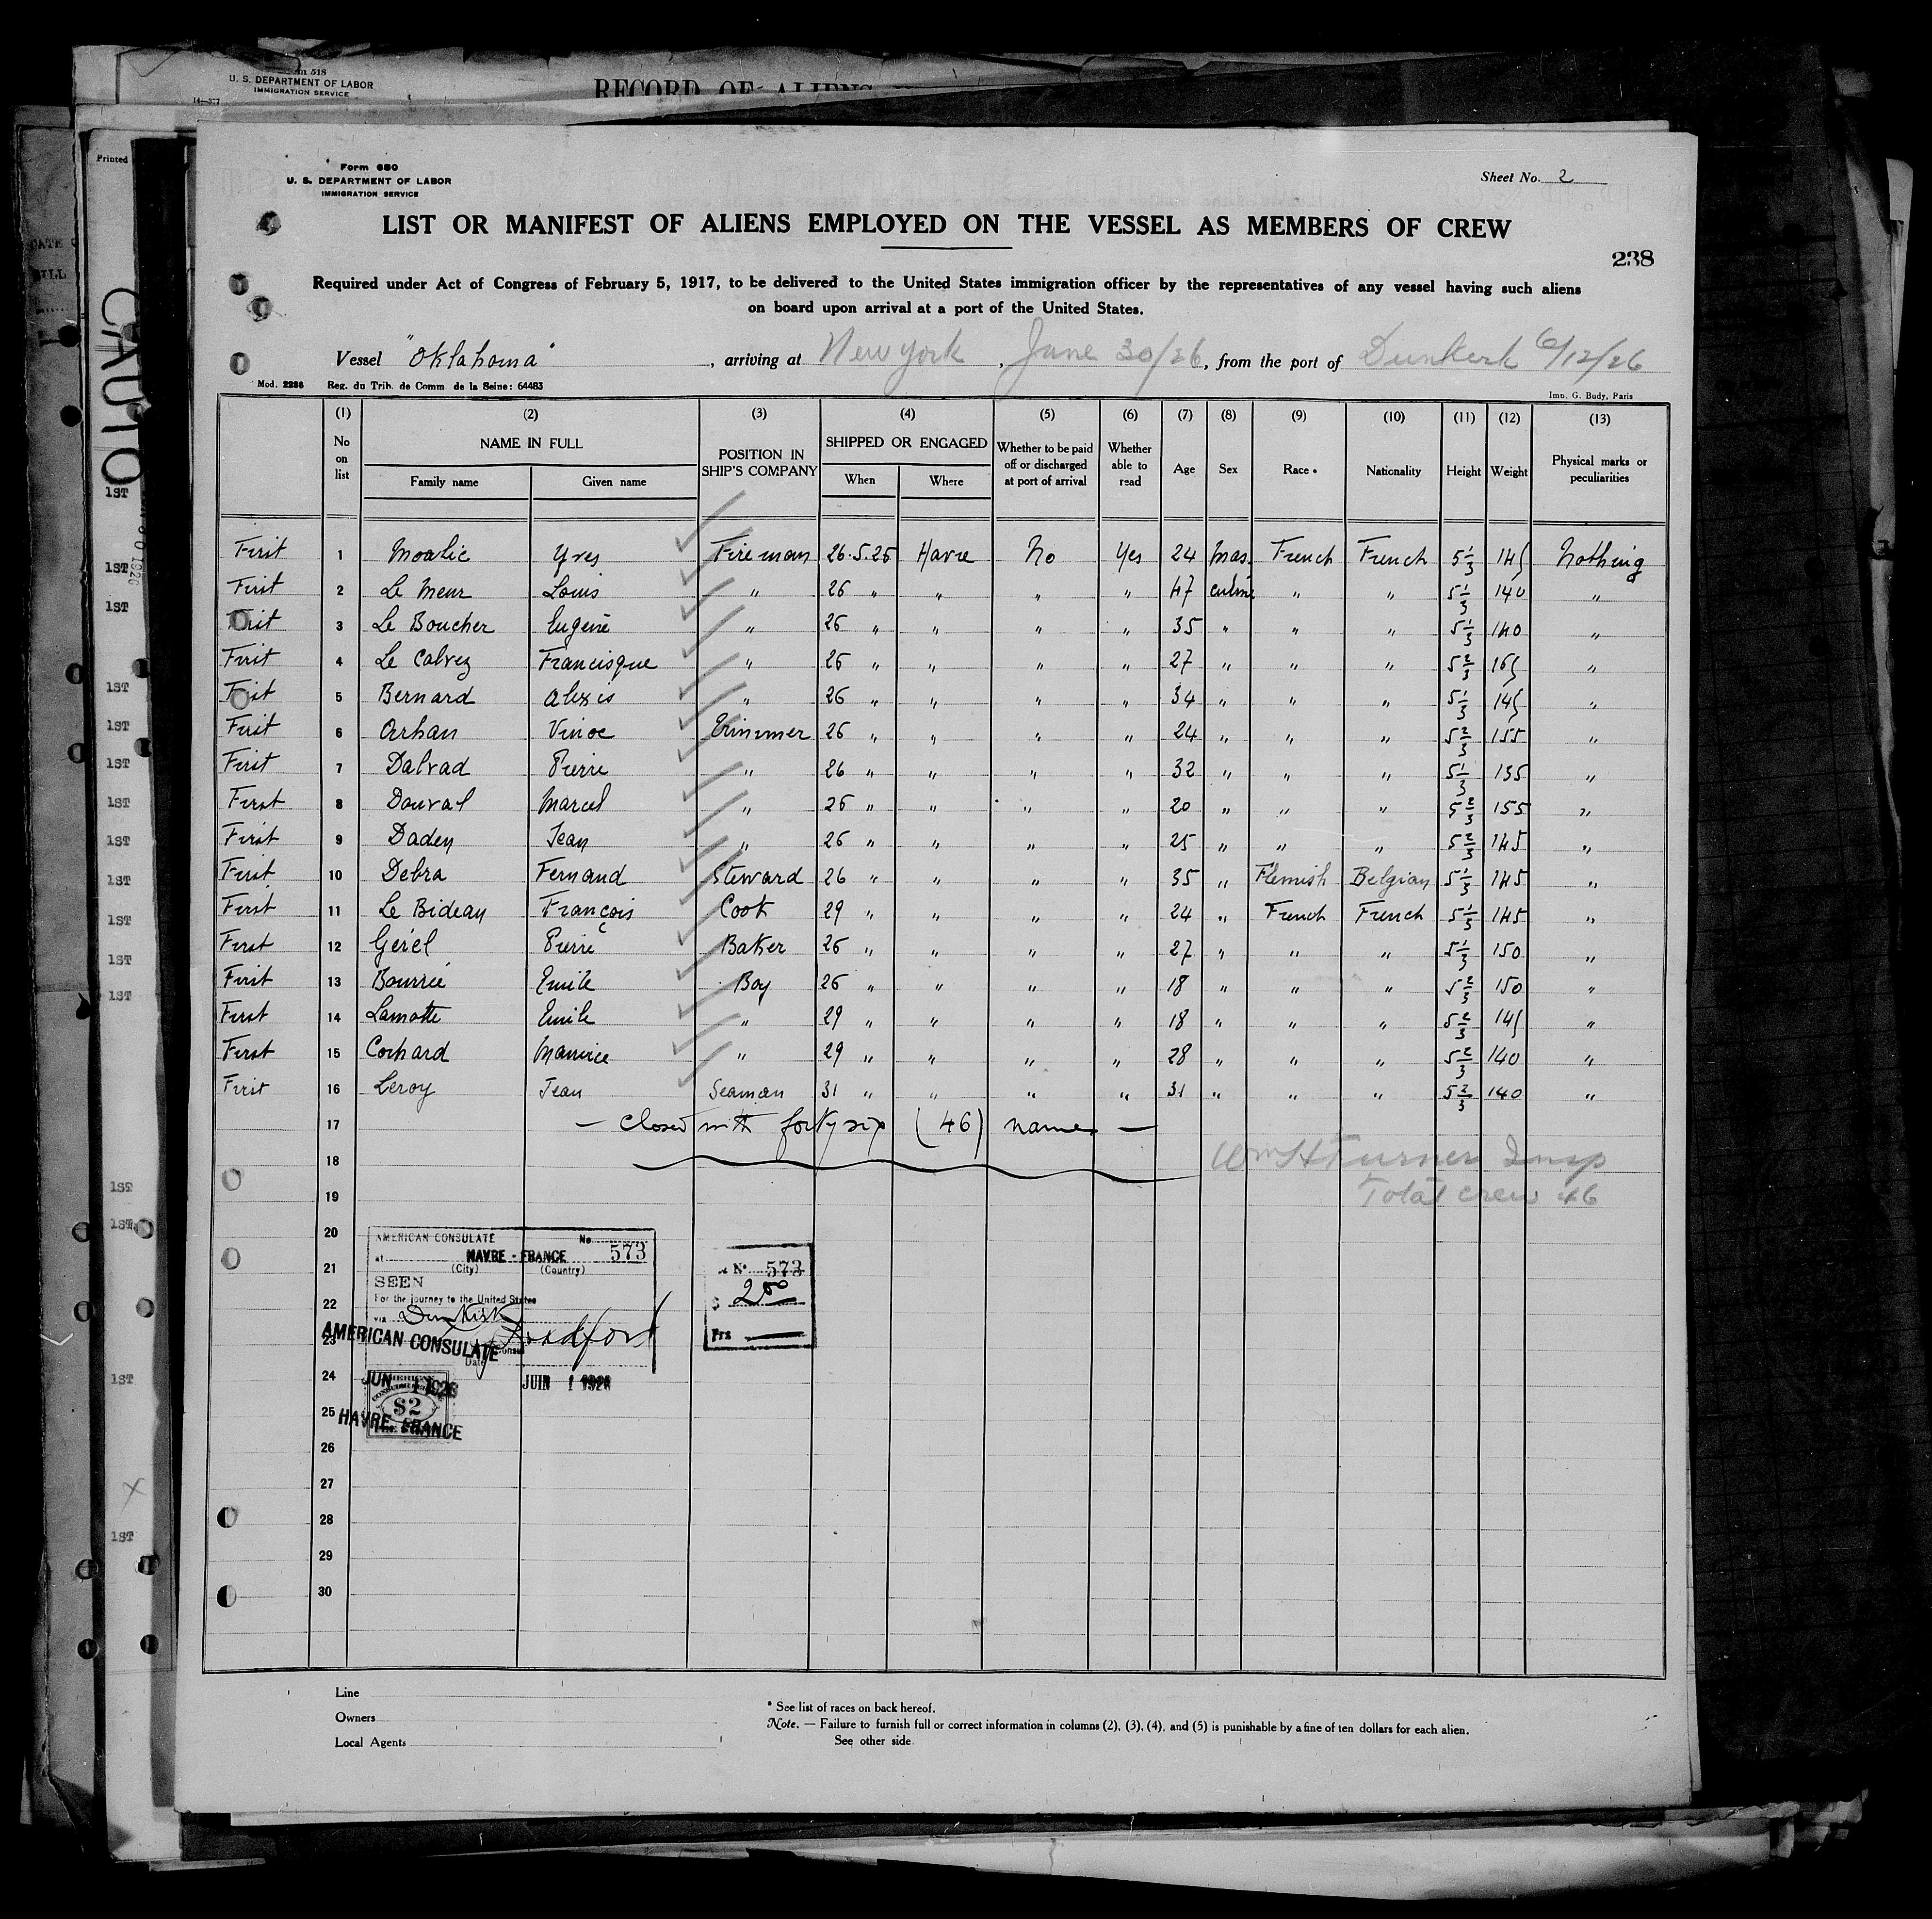 Form 518
U. S. DEPARTMENT OF LABOR
IMMIGRATION SERVICE
14—377
RECORD OF ALIENS
Printed
CAUTIO
Form 680
U. S. DEPARTMENT OF LABOR
IMMIGRATION SERVICE
Sheet No. 2
LIST OR MANIFEST OF ALIENS EMPLOYED ON THE VESSEL AS MEMBERS OF CREW
238
Required under Act of Congress of February 5, 1917, to be delivered to the United States immigration officer by the representatives of any vessel having such aliens
on board upon arrival at a port of the United States.
Vessel "Oklahoma", arriving at New York, June 30/26, from the port of Dunkerk 6/12/26
Mod. 2286 Reg. du Trib. de Comm. de la Seine: 64483
Imp. G. Budy, Paris
(1) (2) (3) (4) (5) (6) (7) (8) (9) (10) (11) (12) (13)
No on list NAME IN FULL POSITION IN SHIP'S COMPANY SHIPPED OR ENGAGED Whether to be paid off or discharged at port of arrival Whether able to read Age Sex Race * Nationality Height Weight Physical marks or peculiarities
Family name Given name When Where
First 1 Moalic Yves Fireman 26.5.26 Havre No Yes 24 Mas. French French 5 1/3 145 Nothing
First 2 Le Meur Louis " 26 " " " " 47 culine " " 5 1/3 140 "
First 3 Le Boucher Eugene " 26 " " " " 35 " " " 5 1/3 140 "
First 4 Le Calvez Francisque " 26 " " " " 27 " " " 5 2/3 165 "
First 5 Bernard Alexis " 26 " " " " 34 " " " 5 1/3 145 "
First 6 Orhan Trimmer 26 " " " " 24 " " " 5 2/3 155 "
First 7 Dalvad Pierre " 26 " " " " 32 " " " 5 1/3 135 "
First 8 Douval Marcel " 26 " " " " 20 " " " 5 2/3 155 "
First 9 Daden Jean " 26 " " " " 25 " " " 5 2/3 145 "
First 10 Debra Fernand Steward 26 " " " " 35 " Flemish Belgian 5 1/3 145 "
First 11 Le Bideau François Cook 29 " " " " 24 " French French 5 1/3 145 "
First 12 Gérel Pierre Baker 26 " " " " 27 " " " 5 1/3 150 "
First 13 Bourrié Emile Boy 26 " " " " 18 " " " 5 2/3 150 "
First 14 Lamotte Emile " 29 " " " " 18 " " " 5 2/3 145 "
First 15 Cochard Maurice " 29 " " " " 28 " " " 5 2/3 140 "
First 16 Leroy Jean Seaman 31 " " " " 31 " " " 5 2/3 140 "
17 — closed with forty six (46) names —
18 Wm H Turner Insp
19 Total crew 46
20
21
22
23
24
25
26
27
28
29
30
AMERICAN CONSULATE No 573
at HAVRE - FRANCE
(City) (Country)
SEEN
For the journey to the United States
via Dunkirk
AMERICAN CONSULATE
Date
JUN 1 1926
JUIN 1 1926
$2
HAVRE, FRANCE
No. 573
$ 2.50
Frs
Line
Owners
Local Agents
* See list of races on back hereof.
Note. — Failure to furnish full or correct information in columns (2), (3), (4), and (5) is punishable by a fine of ten dollars for each alien.
See other side